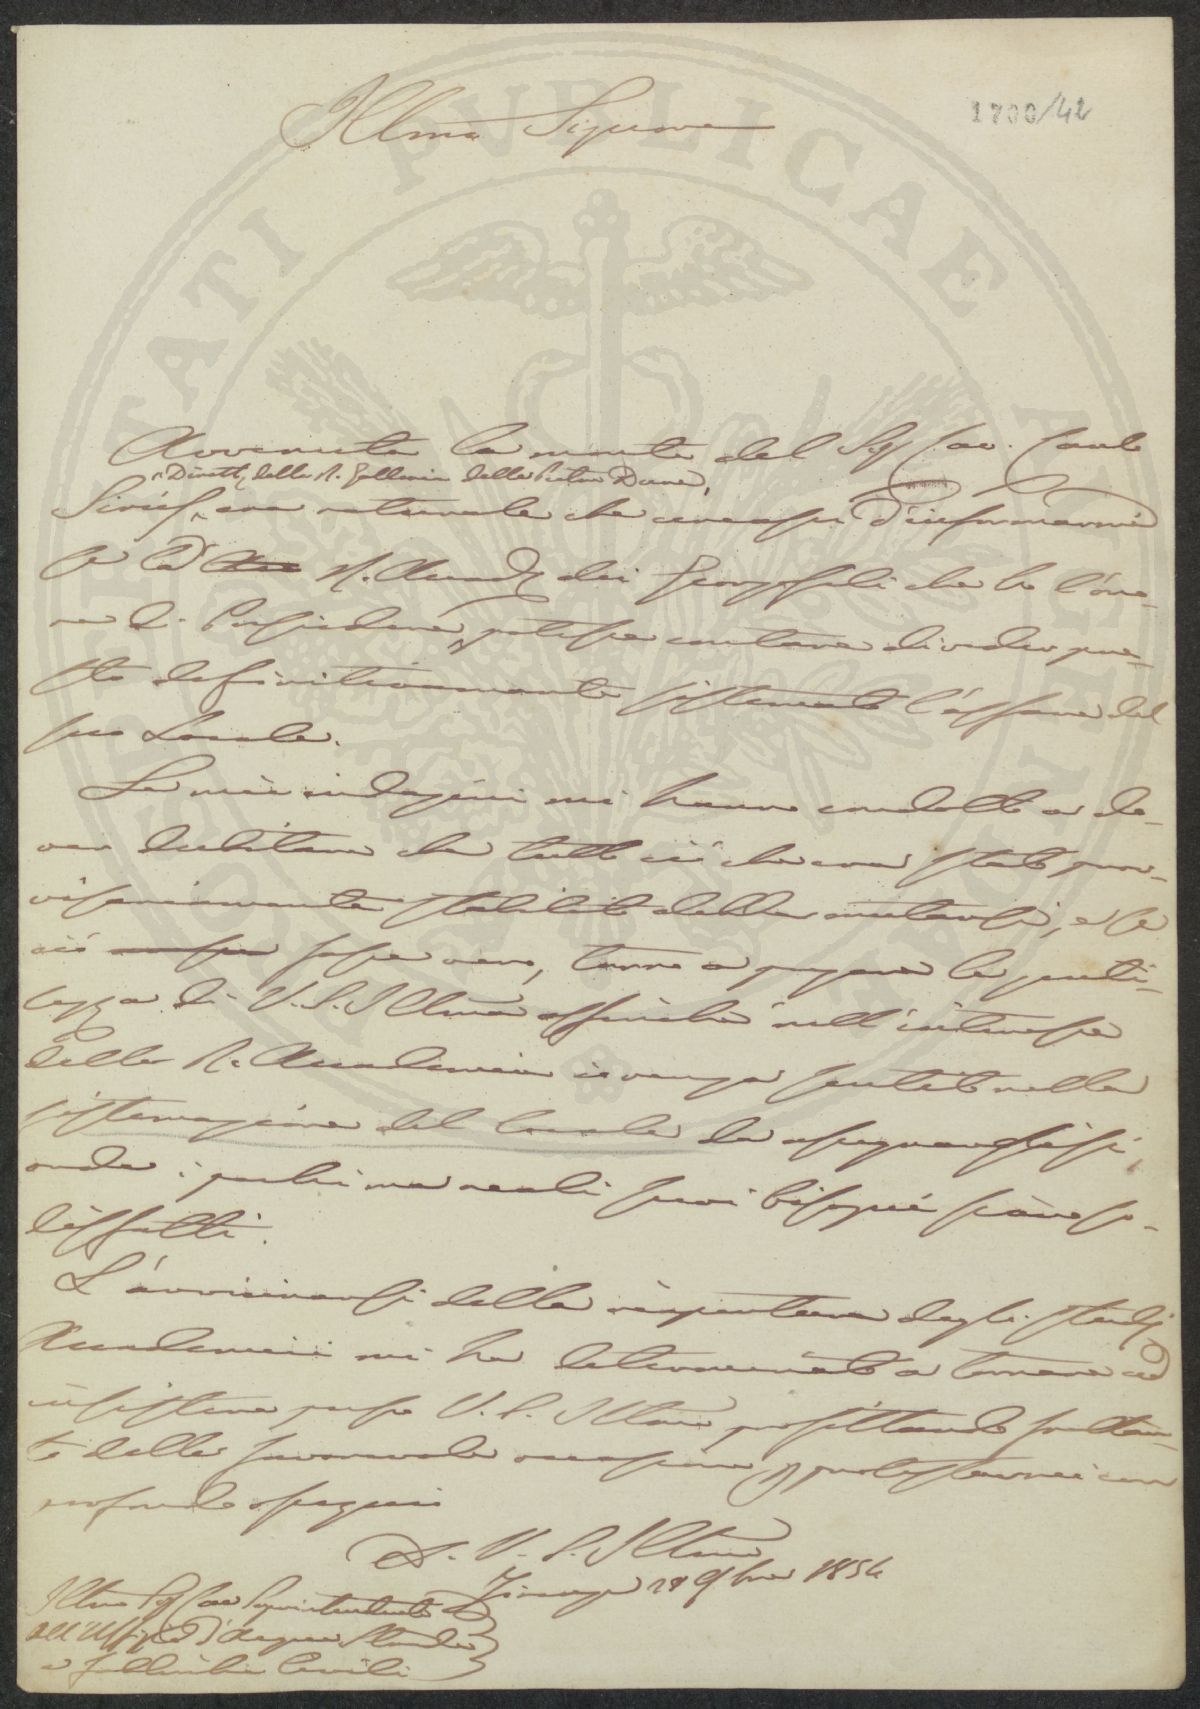 1700/42
Illmo Signore
Avvenuta la morte del Sig Cav. Carlo
Dirett. della R. Galleria delle Pietre Dure,
Siriès, era naturale che cercassi d'informarmi
se la R. Accad. dei Georgofili che ho l'ono-
re di Presiedere, potesse contare di veder pre-
sto definitivamente sistemato l'affare del
suo Locale.
Le mie indagini mi hanno condotto a do-
ver dubitare che tutto ciò che era stato prov-
visoriamente stabilito debba mutarsi, e se
ciò fosse vero, torno a pregare la genti-
lezza di V. S. Illma affinché nell'interesse
della R. Accademia io venga sentito nella
sistemazione del locale da assegnarglisi,
onde i pochi ma reali suoi bisogni siano so-
disfatti.
L'avvicinarsi della riapertura degli studj
Accademici mi ha determinato a tornare ad
insistere presso V. S. Illma profittando soltan-
to della favorevole occasione per protestarmi con
profondo ossequio
D. V. S. Illma
Firenze 28 9bre 1854
Illmo Sig Cav Soprintendente
all'Uffizio d'Acque Strade
e Fabbriche Civili
PUBLICAE